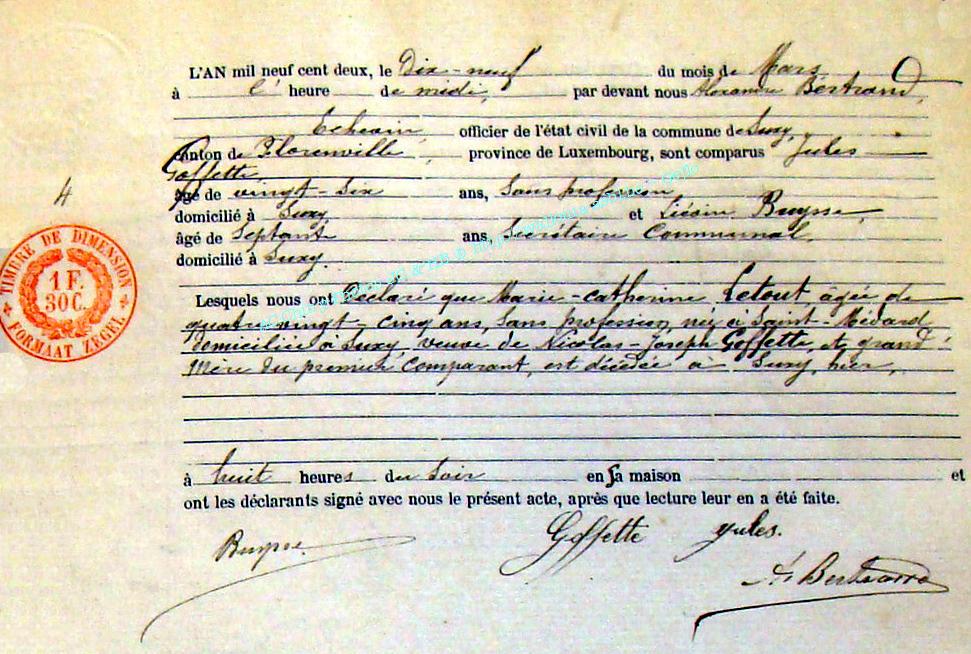 L'AN mil neuf cent deux, le Dix-neuf du mois de Mars
à l' heure de midi, par devant nous Alexandre Bertrand,
Echevin, officier de l'état civil de la commune de Suxy,
canton de Florenville, province de Luxembourg, sont comparus Jules
Goffette
âgé de vingt-six ans, Sans profession,
domicilié à Suxy, et Buysse,
âgé de Septante ans, Secrétaire Communal,
domicilié à Suxy.
4
TIMBRE DE DIMENSION
1 F.
30 C.
FORMAAT ZEGEL
Lesquels nous ont Déclaré que Marie-catherine Letout, âgée de
quatre vingt-cinq ans, Sans profession, née à Saint-Médard
domiciliée à Suxy, veuve de Nicolas-Joseph Goffette, et grand
Mère du premier Comparant, est décédée à Suxy, hier,
à huit heures du Soir en sa maison et
ont les déclarants signé avec nous le présent acte, après que lecture leur en a été faite.
Buysse. Goffette Jules.
Al Bertrand